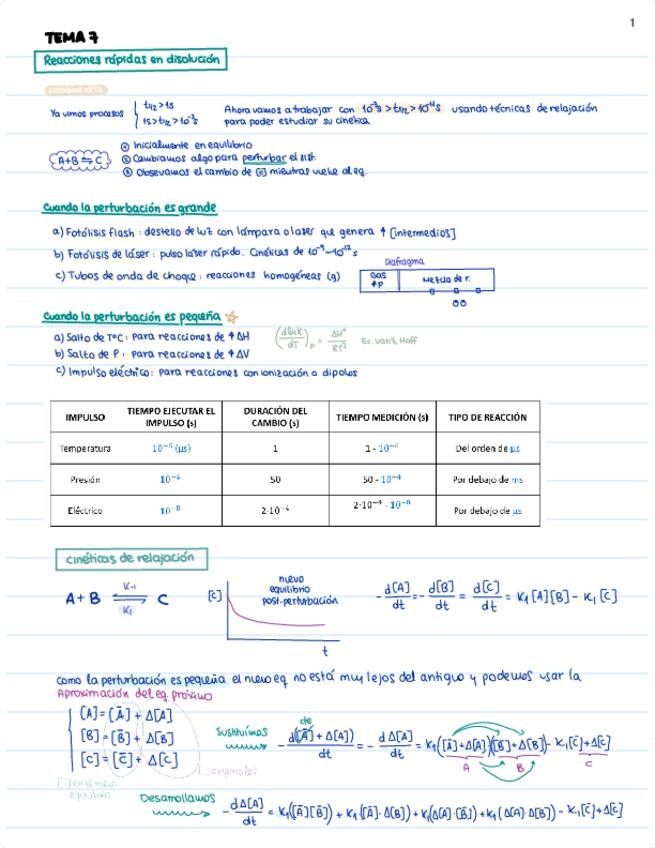 1
TEMA 7
Reacciones rápidas en disolución
Ya vimos procesos { t1/2 > 1s
1s > t1/2 > 10⁻³s
Ahora vamos a trabajar con 10⁻³s > t1/2 > 10⁻¹¹s usando técnicas de relajación
para poder estudiar su cinética
A+B ⇆ C
① Inicialmente en equilibrio
② Cambiamos algo para perturbar el sist.
③ Obsevamos el cambio de [c] mientras vuelve al eq.
Cuando la perturbación es grande
a) Fotólisis flash : destello de luz con lámpara o láser que genera ↑ [intermedios]
b) Fotólisis de láser : pulso láser rápido. Cinéticas de 10⁻⁹-10⁻¹² s
c) Tubos de onda de choque : reacciones homogéneas (g)
Diafragma
Gas
↑p
Mezcla de r.
Cuando la perturbación es pequeña
a) Salto de TºC : para reacciones de ↑ ΔH
(dlnk/dT)p = ΔHº/RT² Ec. van't Hoff
b) Salto de P : para reacciones de ↑ ΔV
c) Impulso eléctrico : para reacciones con ionización o dipolos
IMPULSO | TIEMPO EJECUTAR EL IMPULSO (s) | DURACIÓN DEL CAMBIO (s) | TIEMPO MEDICIÓN (s) | TIPO DE REACCIÓN
Temperatura | 10⁻⁶ (μs) | 1 | 1 - 10⁻⁶ | Del orden de μs
Presión | 10⁻⁴ | 50 | 50 - 10⁻⁴ | Por debajo de ms
Eléctrico | 10⁻⁸ | 2·10⁻⁴ | 2·10⁻⁴ - 10⁻⁸ | Por debajo de μs
cinéticas de relajación
A + B ⇌ C
K-1
K1
[c]
nuevo
equilibrio
post-perturbación
t
- d[A]/dt = - d[B]/dt = d[C]/dt = K1 [A][B] - K1 [C]
como la perturbación es pequeña el nuevo eq. no está muy lejos del antiguo y podemos usar la
Aproximación del eq. próximo
[A] = [Ā] + Δ[A]
[B] = [B̄] + Δ[B]
[C] = [C̄] + Δ[C]
Sustituimos
- d([Ā] + Δ[A])/dt = - dΔ[A]/dt = K1([Ā]+Δ[A])([B̄]+Δ[B]) - K1[C̄]+Δ[C]
A B C
Desarrollamos
- dΔ[A]/dt = K1([Ā][B̄]) + K1([Ā]·Δ[B]) + K1(Δ[A]·[B̄]) + K1(Δ[A]·Δ[B]) - K1[C̄]+Δ[C]